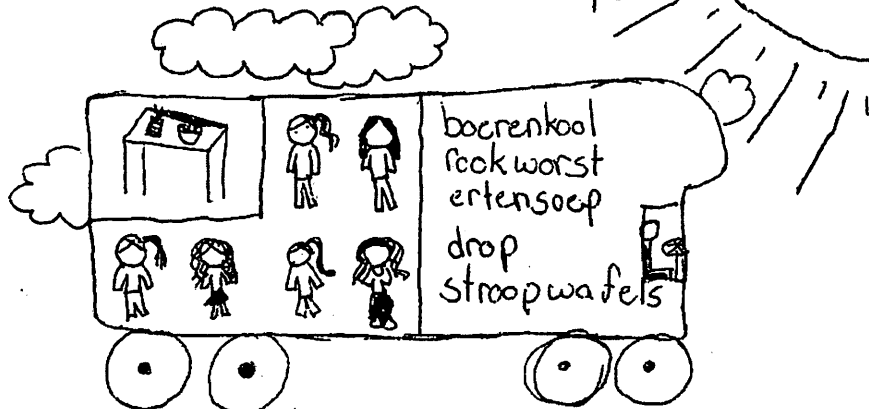 boerenkool
rookworst
ertensoep
drop
stroopwafels